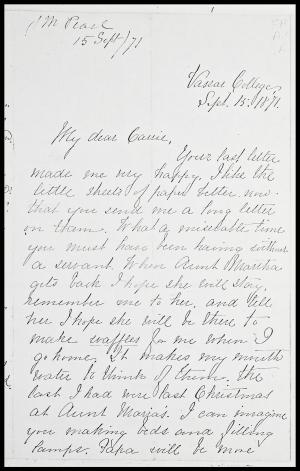 J M Pease
15 Sept/71
Vassar College,
Sept. 15. 1871.
My dear Carrie,
Your last letter
made me very happy. I like the
little sheets of paper better now
that you send me a long letter
on them. What a miserable time
you must have been having without
a servant. When Aunt Martha
gets back I hope she will stay,
remember me to her, and tell
her I hope she will be there to
make waffles for me when I
go home. It makes my mouth
water to think of them. The
last I had were last Christmas
at Aunt Maria's. I can imagine
you making beds and filling
lamps. Papa will be more